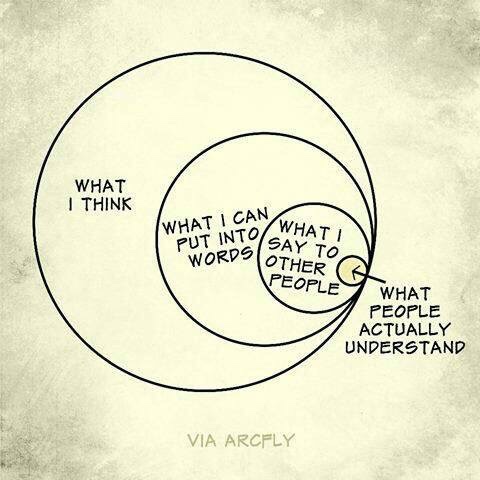 WHAT
I THINK
WHAT I CAN
PUT INTO
WORDS
WHAT I
SAY TO
OTHER
PEOPLE
WHAT
PEOPLE
ACTUALLY
UNDERSTAND
VIA ARCFLY